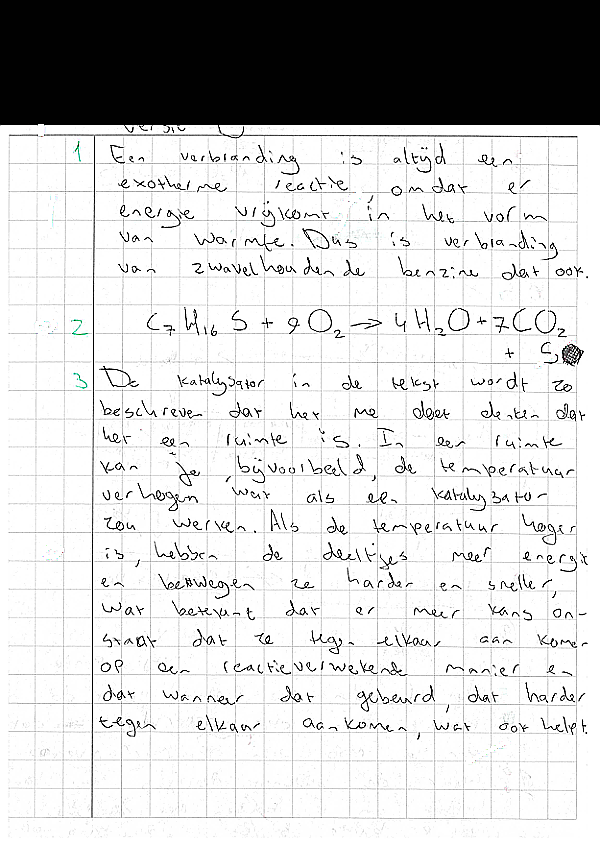 versie
1 Een verbranding is altijd een
exotherme reactie, omdat er
energie vrijkomt in het vorm
van warmte. Dus is verbranding
van zwavelhoudende benzine dat ook.
2 C7H16S + 9O2 → 4H2O + 7CO2
+ S
3 De katalysator in de tekst wordt zo
beschreven dat het me doet denken dat
het een ruimte is. In een ruimte
kan je, bijvoorbeeld, de temperatuur
verhogen wat als een katalysator
zou werken. Als de temperatuur hoger
is, hebben de deeltjes meer energie
en bewegen ze harder en sneller,
wat betekent dat er meer kans on-
staat dat ze tegen elkaar aan komen
op een reactieverwekende manier en
dat wanneer dat gebeurd, dat harder
tegen elkaar aankomen, wat ook helpt.